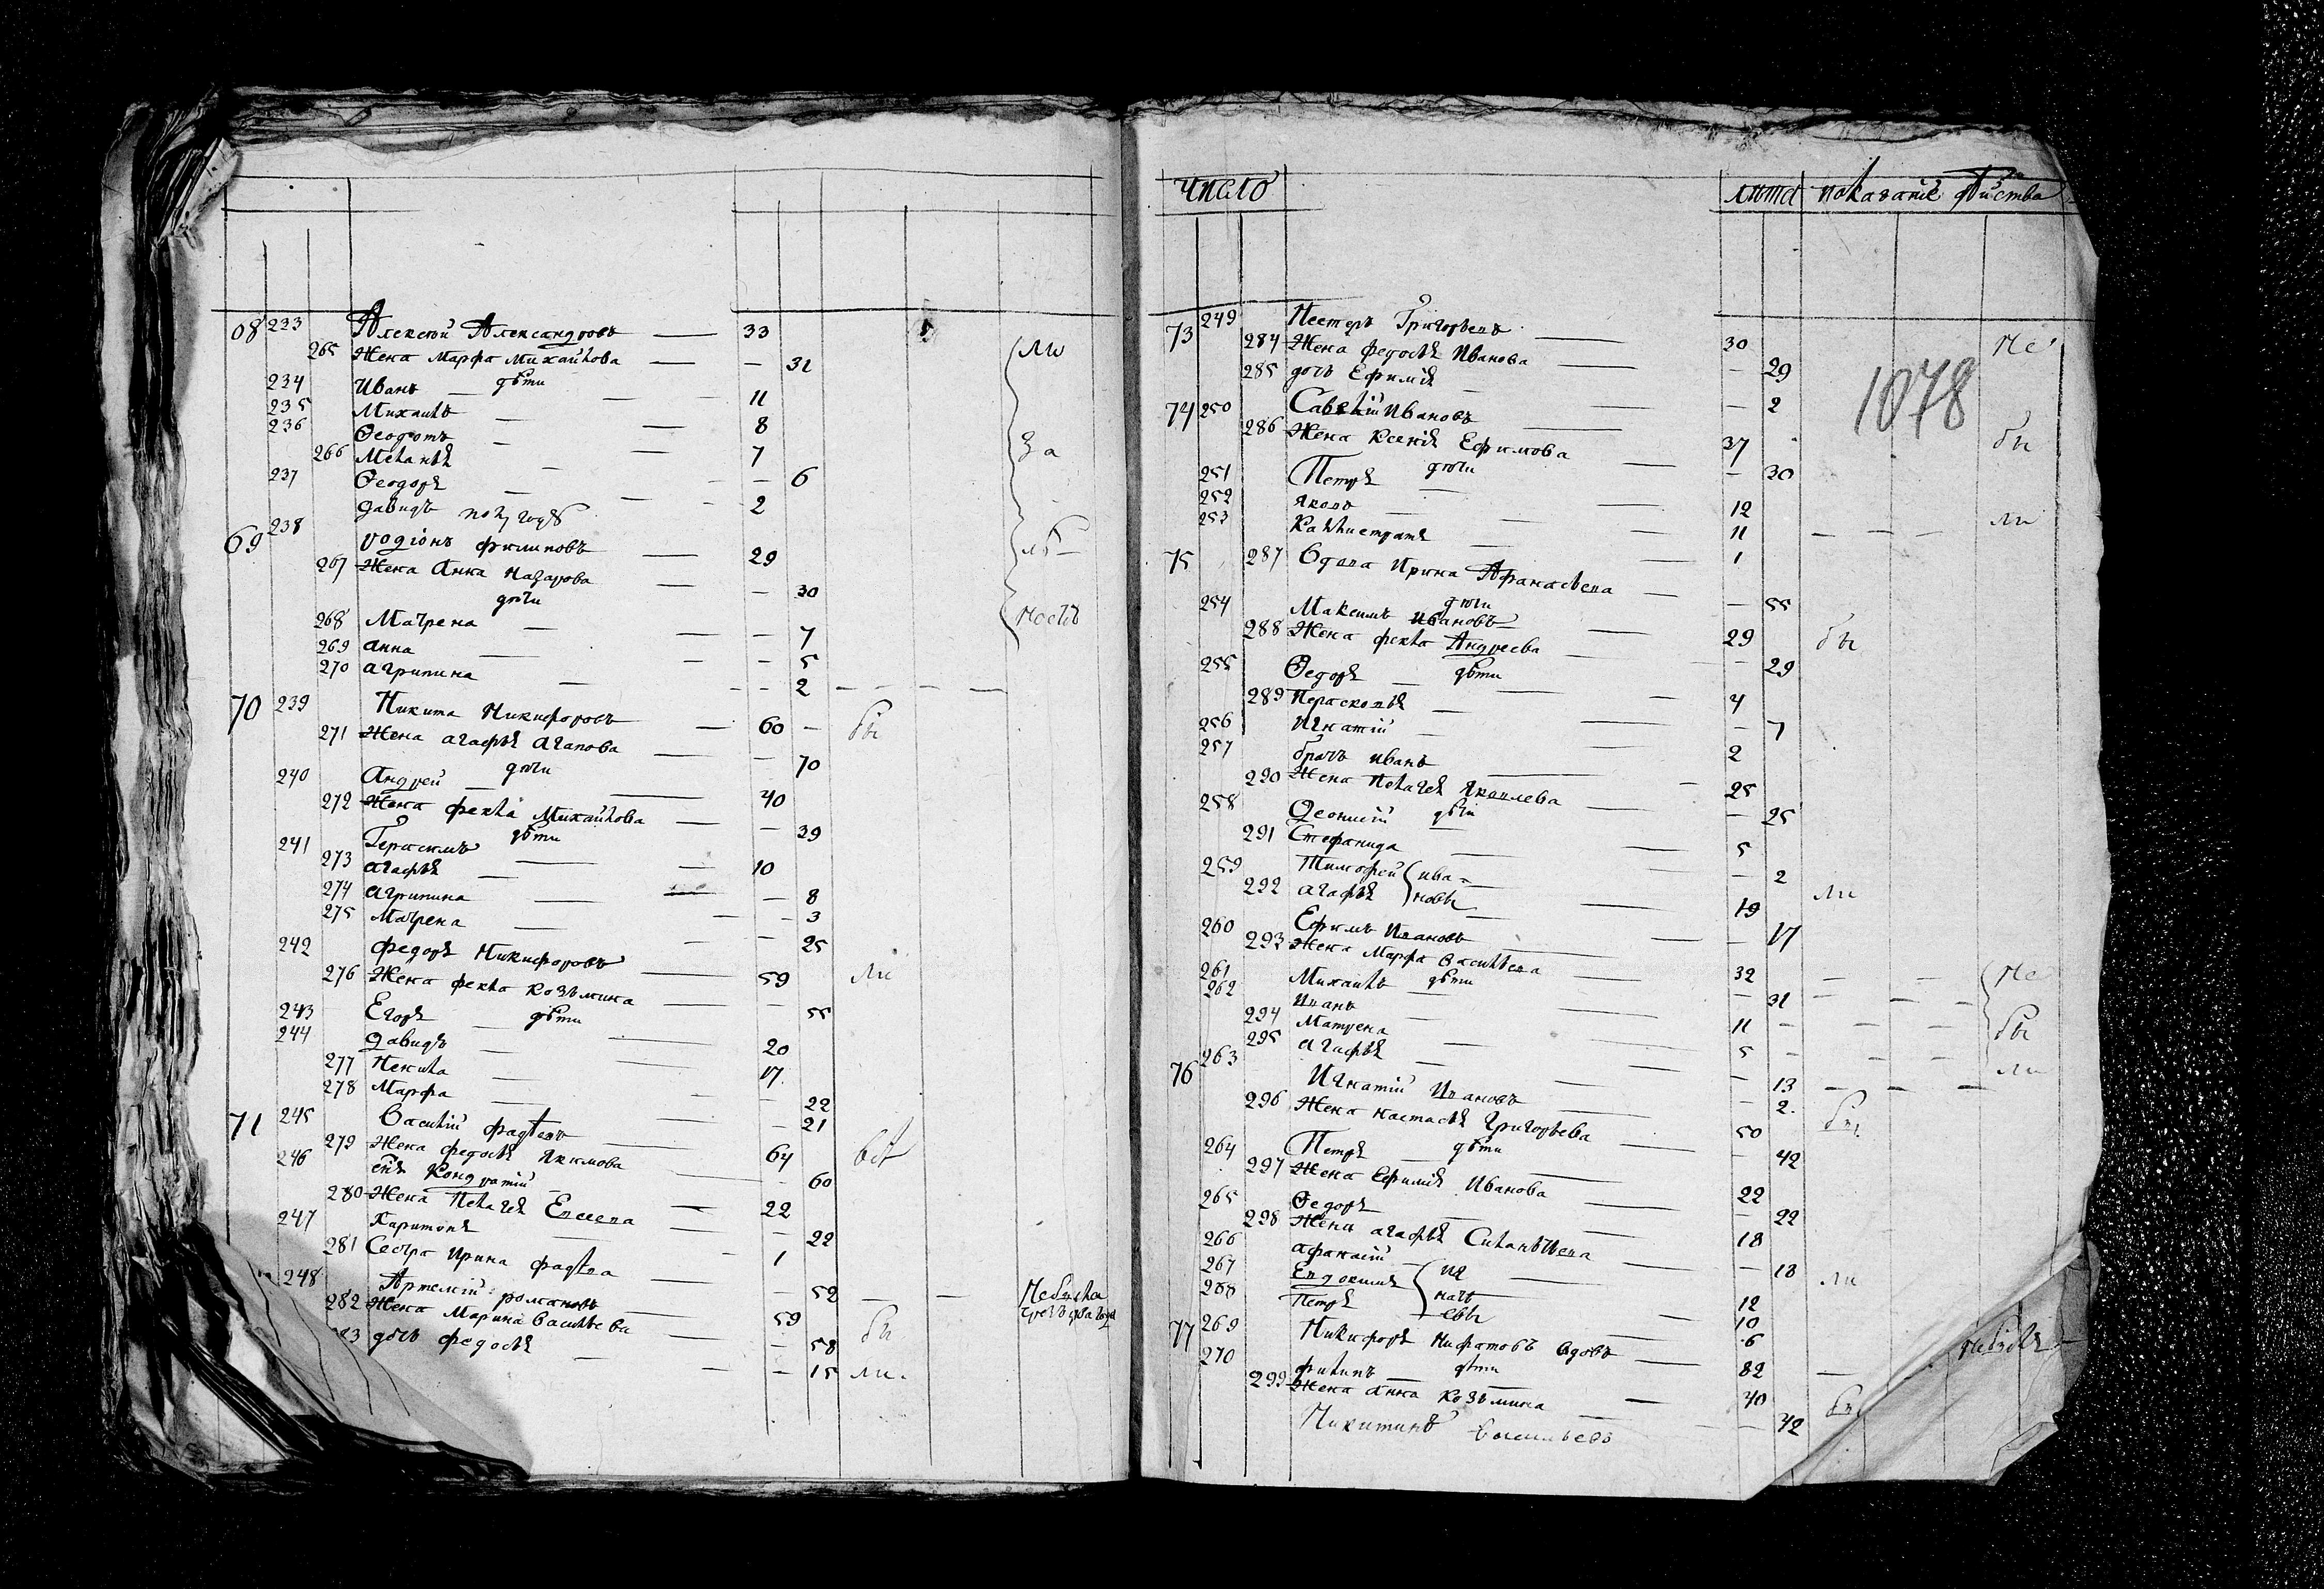 08 233 Алексѣй Александровъ — 33
265 Жена Марфа Михайлова — — 31 ли
дѣти
234 Иванъ — 11
235 Михаилъ — 8
236 Ѳеодотъ — 7 за
266 Меланья — — 6
237 Ѳеодоръ — 2
давидъ полугоду
69 238 родіонъ филиповъ — 29
267 Жена Анна Назарова — — 30
дѣти
268 Матрена — — 7 ность
269 анна — — 5
270 агрипина — — 2 — — — —
70 239 Никита Никифоровъ — 60 — бы
271 Жена агафья агапова — — 70
дѣти
240 андрей — 40
272 Жена фекла Михайлова — — 39
дѣти
241 Герасимъ — 10
273 агафья — — 8
274 агрипина — — 3
275 Матрена — — 25
242 федоръ Никифоровъ — 59 ли
276 Жена фекла козьмина — — 55
дѣти
243 Егоръ — 20
244 давидъ — 17
277 Некила — — 22
278 Марфа — — 21
71 245 Василій фадѣевъ — 64 всѣ
279 Жена федосья Якимова — — 60
246 сынъ Кондратій — 22
280 Жена Пелагея — — 22
247 Харитонъ — 1
281 Сестра Ирина фадѣева — — 52 — —
248 Артемій романовъ — 59 бы Небыла
чрезъ два года
282 Жена Марина васильева — — 58
83 дочь федосья — — 15 ли.
число лѣта показаніе дѣйства
73 249 Нестеръ Григорьевъ — 30 Не
284 Жена федосья Иванова — — 29
285 дочь Ефимія — — 2
1078
74 250 Савелій Ивановъ — 37 бы
286 Жена ксенія Ефимова — — 30
дѣти
251 Петръ — 12
252 яковъ — 11 — — — ли
253 Каллистратъ — 1
75 287 Вдова Ирина Афанасьева — — 55
дѣти
254 Максимъ Ивановъ — 29 бы
288 Жена фекла Андреева — — 29
дѣти
255 Ѳедоръ — 4
289 Парасковья — — 7
256 Игнатій — 2
257 братъ иванъ — 25
290 Жена Пелагея Яковлева — — 25
дѣти
258 Леонтій — 5
291 Стефанида — — 2
259 Тимофей ива= — 19 ли
292 агафья новы — — 17
260 Ефимъ Ивановъ — 32 — — — Не
293 Жена Марфа васильева — — 31 — — —
дѣти
261 Михаилъ — 11 — — — бы
262 Иванъ — 5 — — —
294 Матрена — — 13 — — — ли
295 агафья — — 2.
76 263 Игнатій Ивановъ — 50 бы
296 Жена настасья Григорьева — — 42
дѣти
264 Петръ — 22
297 Жена Ефимія Иванова — — 22
265 Ѳедоръ — 18
298 Жена агафья Силантьева — — 18 ли
266 афанасій иг — 12
267 Евдокимъ нать — 10
268 Петръ евы — 6
77 269 Никифоръ Нифатовъ вдовъ — 82 —
дѣти
270 филипъ — 40 бы
299 Жена анна козьмина — — 42
Никитинъ васильевъ